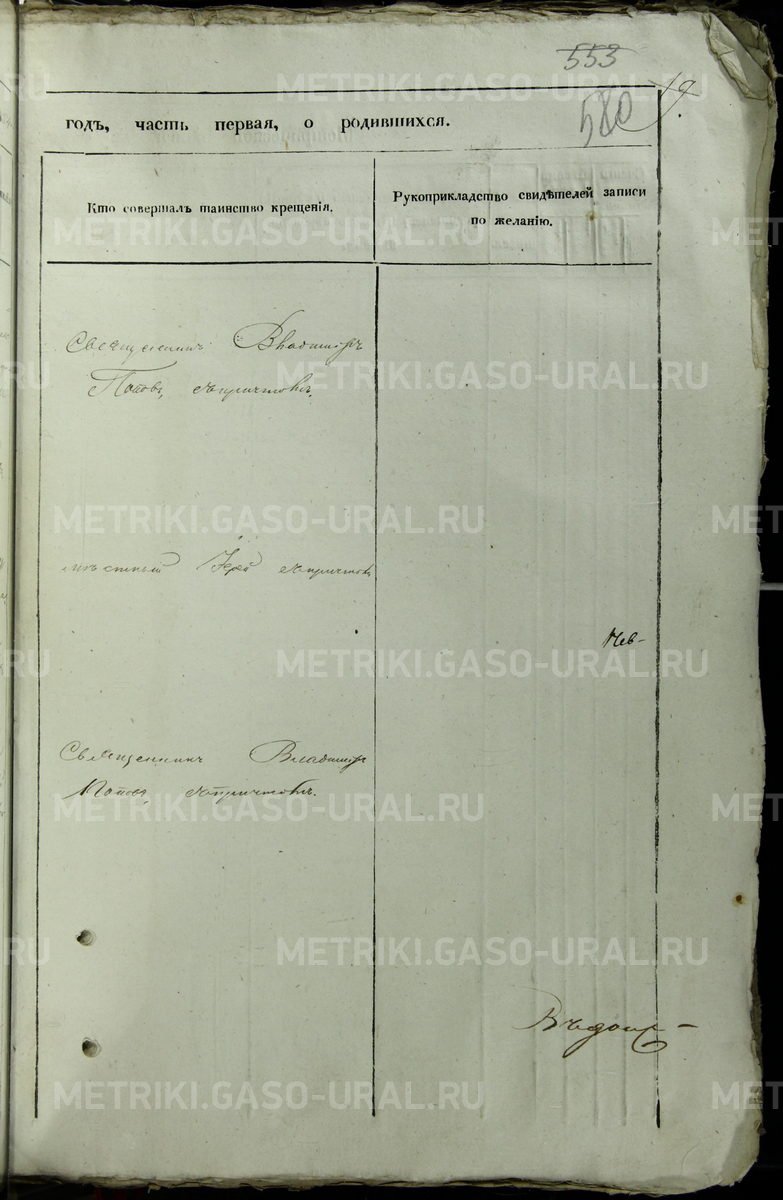 553
19
580
годъ, часть первая, о родившихся.
Кто совершалъ таинство крещенія.
Рукоприкладство свидѣтелей записи
по желанію.
Священникъ Владиміръ
Поповъ, съ причтомъ.
мѣстный Іерей съ причтомъ
Священникъ Владиміръ
Поповъ, съ причтомъ.
METRIKI.GASO-URAL.RU